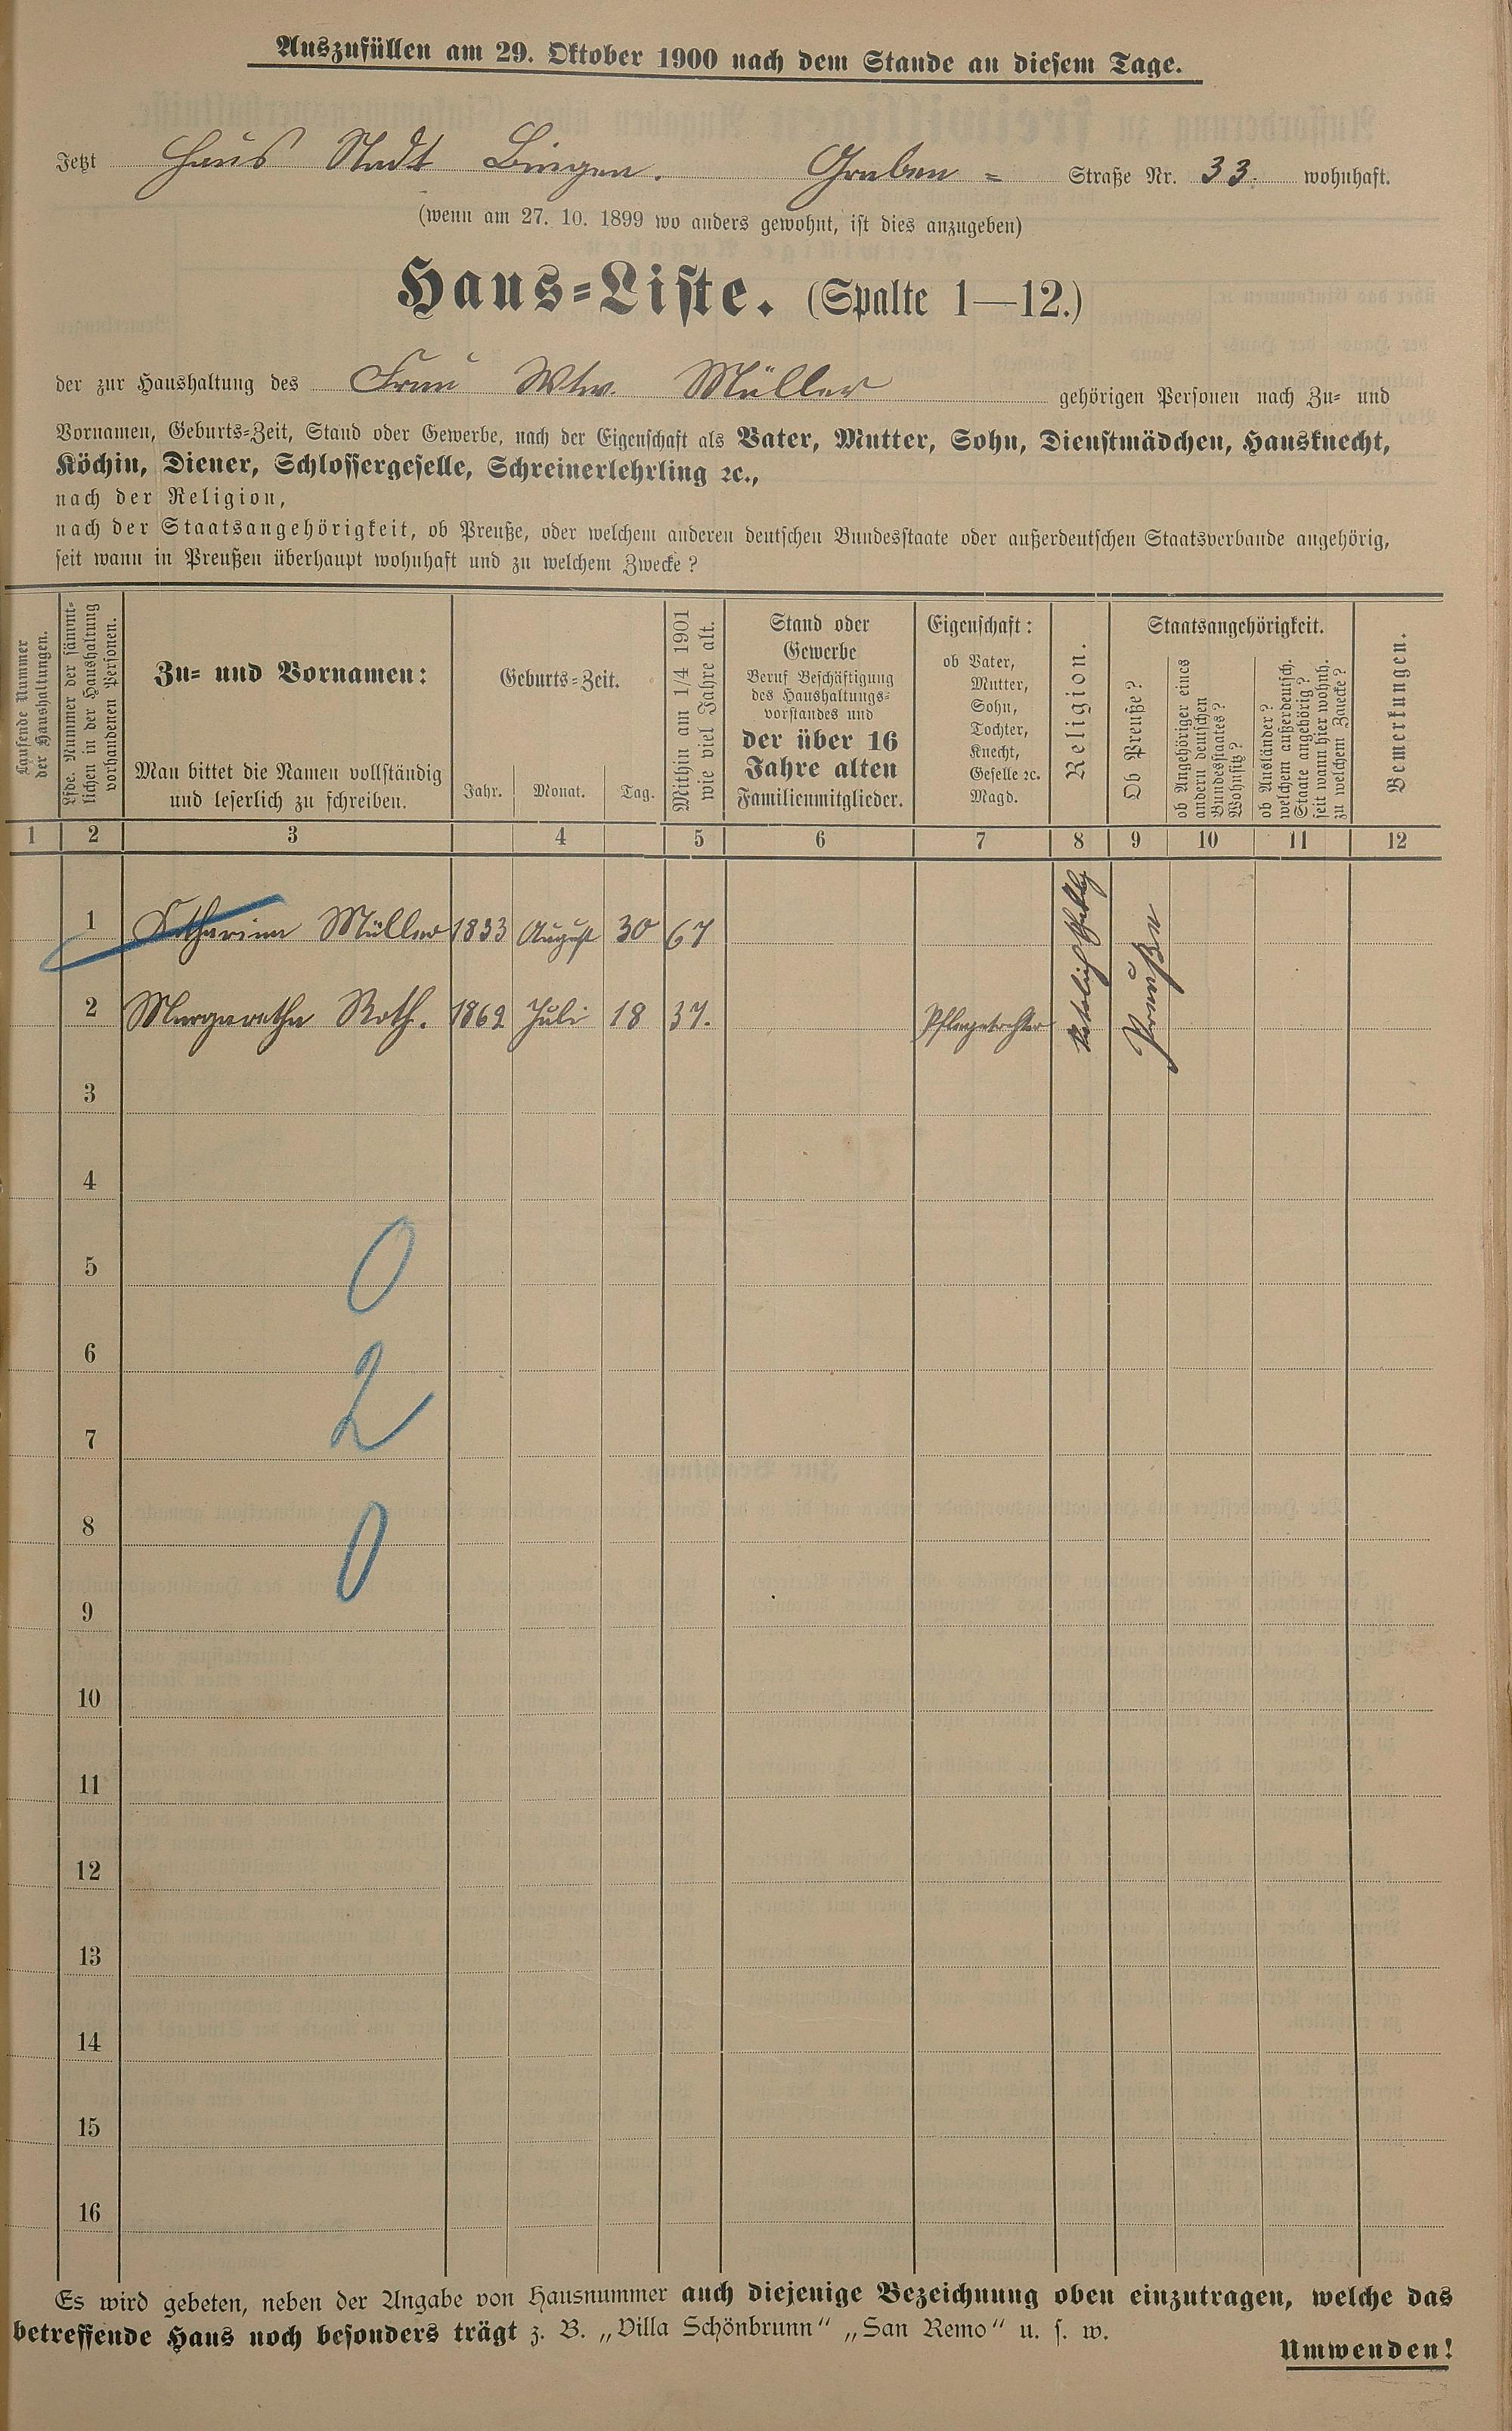 Auszufüllen am 29. Oktober 1900 nach dem Stande an diesem Tage.
Jetzt Haus Stadt Bingen. Graben = Straße Nr. 33. wohnhaft.
(wenn am 27. 10. 1899 wo anders gewohnt, ist dies anzugeben)
Haus=Liste. (Spalte 1—12.)
der zur Haushaltung des Frau Wtw. Müller gehörigen Personen nach Zu= und
Vornamen, Geburts=Zeit, Stand oder Gewerbe, nach der Eigenschaft als Vater, Mutter, Sohn, Dienstmädchen, Hausknecht,
Köchin, Diener, Schlossergeselle, Schreinerlehrling ꝛc.,
nach der Religion,
nach der Staatsangehörigkeit, ob Preuße, oder welchem anderen deutschen Bundesstaate oder außerdeutschen Staatsverbande angehörig,
seit wann in Preußen überhaupt wohnhaft und zu welchem Zwecke?
Laufende Nummer
der Haushaltungen.
Lfde. Nummer der sämmt=
lichen in der Haushaltung
vorhandenen Personen.
Zu= und Vornamen:
Man bittet die Namen vollständig
und leserlich zu schreiben.
Geburts=Zeit.
Jahr. Monat. Tag.
Mithin am 1/4 1901
wie viel Jahre alt.
Stand oder
Gewerbe
Beruf Beschäftigung
des Haushaltungs=
vorstandes und
der über 16
Jahre alten
Familienmitglieder.
Eigenschaft:
ob Vater,
Mutter,
Sohn,
Tochter,
Knecht,
Geselle ꝛc.
Magd.
Religion.
Staatsangehörigkeit.
Ob Preuße?
ob Angehöriger eines
andern deutschen
Bundesstaates?
Wohnsitz?
ob Ausländer?
welchem außerdeutsch.
Staate angehörig?
seit wann hier wohnh.
zu welchem Zwecke?
Bemerkungen.
1 2 3 4 5 6 7 8 9 10 11 12
1 Katharina Müller 1833 August 30 67
2 Margaretha Roth. 1862 Juli 18 37. Pflegetochter
Preußen
3
4
5
0
6
2
7
8
0
9
10
11
12
13
14
15
16
Es wird gebeten, neben der Angabe von Hausnummer auch diejenige Bezeichnung oben einzutragen, welche das
betreffende Haus noch besonders trägt z. B. „Villa Schönbrunn" „San Remo" u. s. w.
Umwenden!